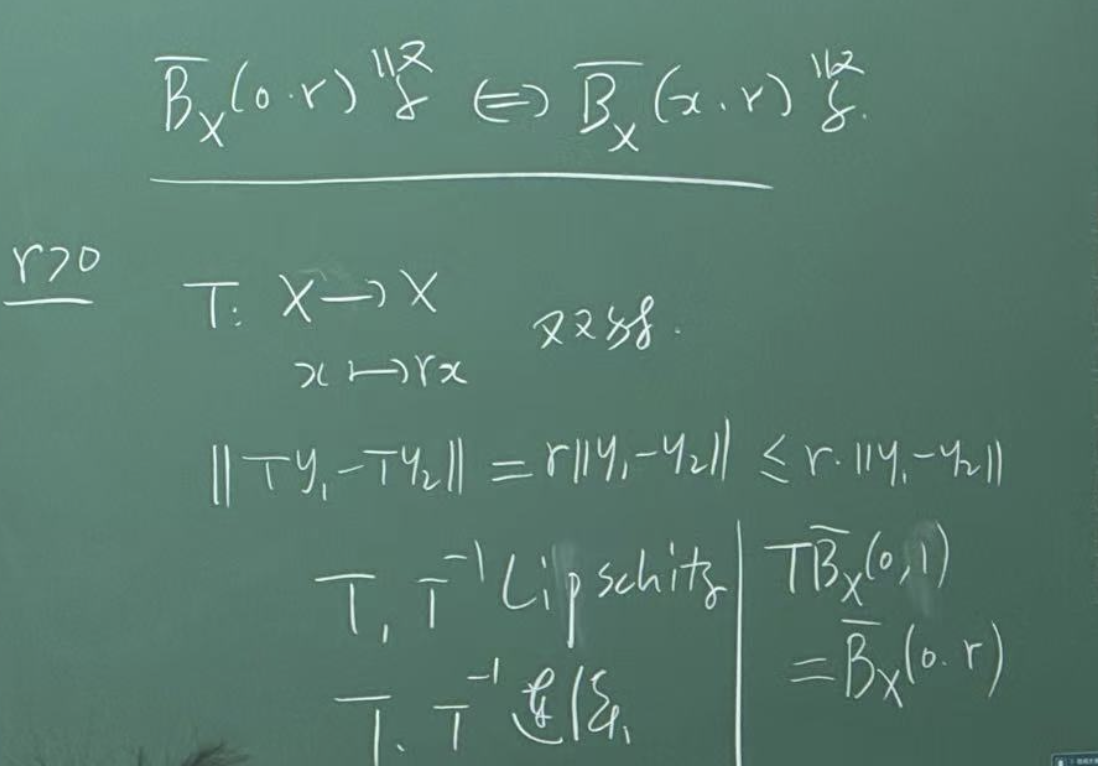 B̅_X(0.r) 紧 ⇔ B̅_X(x.r) 紧.
r>0
T: X→X 双射.
x ↦ rx
‖Ty₁-Ty₂‖ = r‖y₁-y₂‖ ≤ r·‖y₁-y₂‖
T, T⁻¹ Lipschitz
T. T⁻¹ 连续.
TB̅_X(0,1)
= B̅_X(0.r)